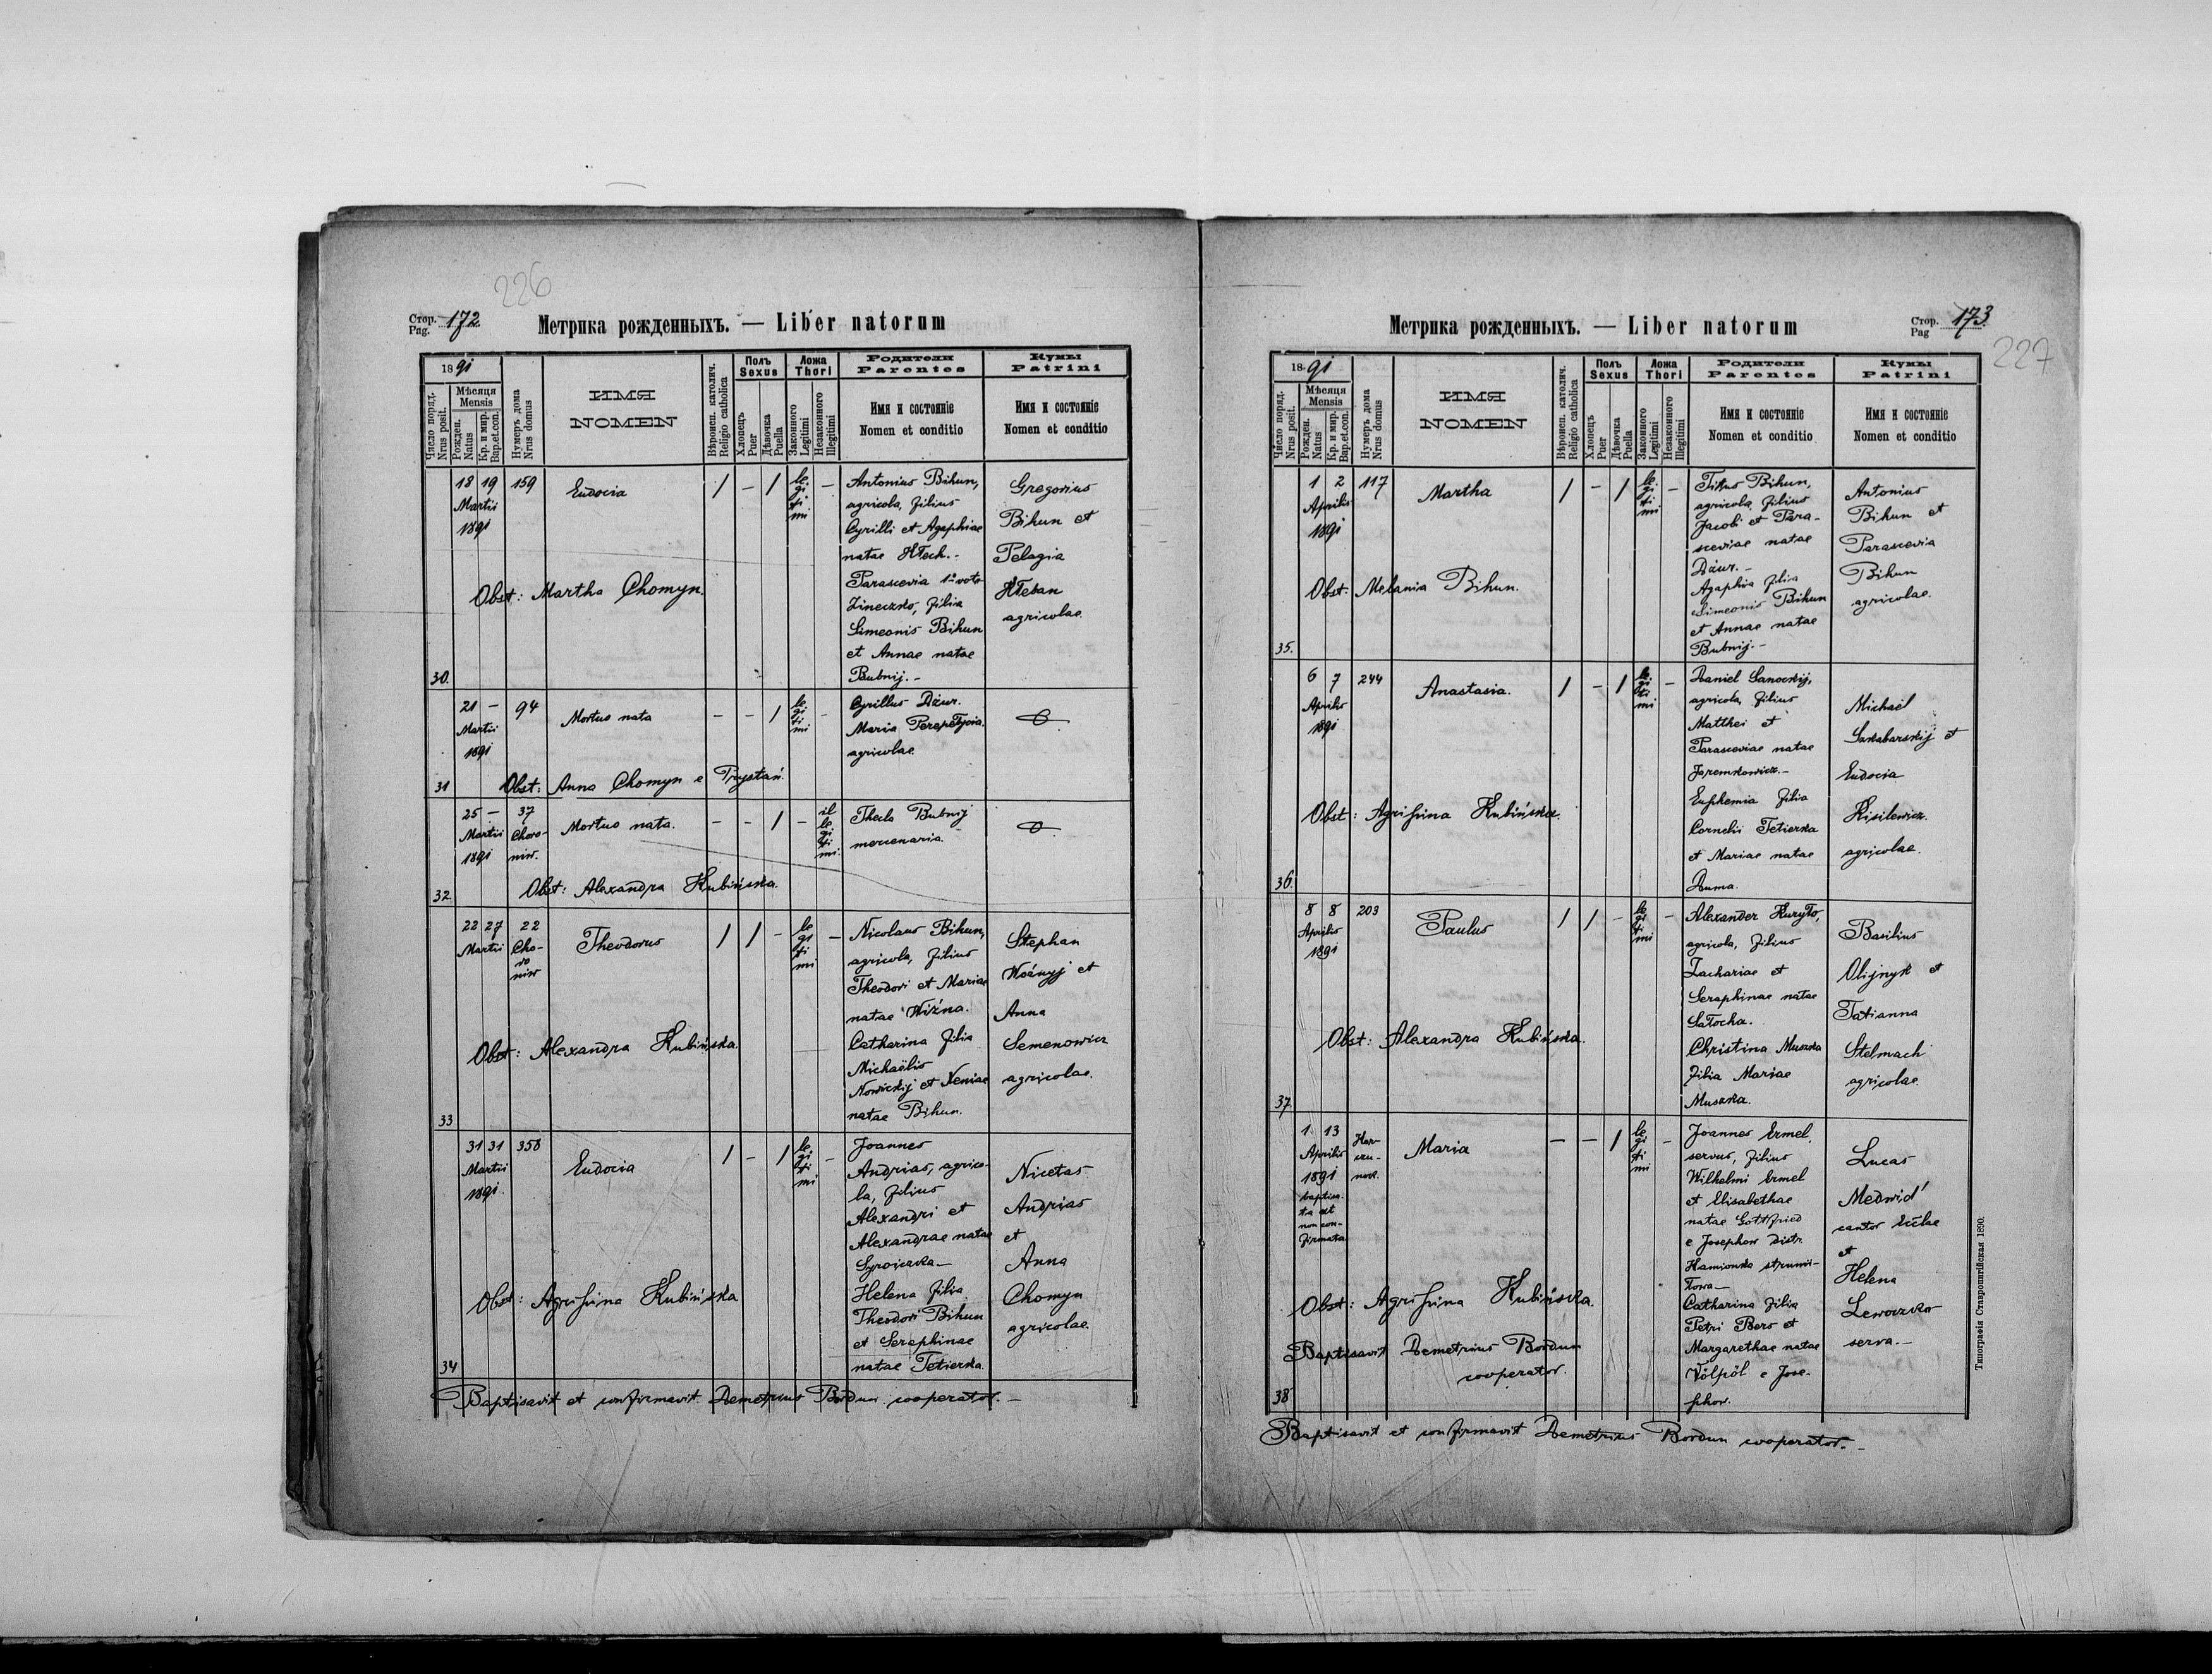 226
Стор.
Pag. 172.
Метрика рожденныхъ. — Liber natorum
1891
Число поряд.
Nrus posit.
Мѣсяця
Mensis
Рожден.
Natus
Кр. и мир.
Bap.et.con.
Нумеръ дома
Nrus domus
ИМЯ
NOMEN
Вѣроисп. католич.
Religio catholica
Полъ
Sexus
Хлопецъ
Puer
Дѣвочка
Puella
Ложа
Thori
Законного
Legitimi
Незаконного
Illegitimi
Родители
Parentes
Имя и состояніе
Nomen et conditio
Кумы
Patrini
Имя и состояніе
Nomen et conditio
30.
18 19 159
Martii
1891
Eudocia
/ - /
le
gi
ti
mi
-
Antonius Bihun,
agricola, filius
Cyrilli et Agaphiae
natae Hłech.-
Parascevia 1º voto
Zineczko, filia
Simeonis Bihun
et Annae natae
Bubnij.-
Gregorius
Bihun et
Pelagia
Hłeban
agricolae.
Obst: Martha Chomyn.
31
21 - 94
Martii
1891
Mortuo nata
- - /
le
gi
ti
mi
-
Cyrillus Dżur.
Maria
agricolae.
Obst: Anna Chomyn e Prystań.
32.
25 - 37
Martii Choro-
1891 niw.
Mortuo nata.
- - / -
il
le
gi
ti
mi.
Thecla Bubnij
mercenaria.
Obst: Alexandra Kubińska.
33
22 27 22
Martii Cho-
ro
niw
Theodorus
/ / -
le
gi
ti
mi
-
Nicolaus Bihun,
agricola, filius
Theodori et Mariae
natae Wiżna.
Catharina filia
Michaëlis
Nowickij et Xeniae
natae Bihun.
Stephan
Woźnyj et
Anna
Semenowicz
agricolae.
Obst: Alexandra Kubińska.
34
31 31 358
Martii
1891.
Eudocia
/ - /
le
gi
ti
mi
-
Joannes
Andrias, agrico-
la, filius
Alexandri et
Alexandrae natae
Helena filia
Theodori Bihun
et Seraphinae
natae Tetierka.
Nicetas
Andrias
et
Anna
Chomyn
agricolae.
Obst: Agrifina Kubińska
Baptisavit et confirmavit Demetrius Bordun cooperator.-
Метрика рожденныхъ. — Liber natorum
Стор.
Pag 173.
227
1891
Число поряд.
Nrus posit.
Мѣсяця
Mensis
Рожден.
Natus
Кр. и мир.
Bap.et.con.
Нумеръ дома
Nrus domus
ИМЯ
NOMEN
Вѣроисп. католич.
Religio catholica
Полъ
Sexus
Хлопецъ
Puer
Дѣвочка
Puella
Ложа
Thori
Законного
Legitimi
Незаконного
Illegitimi
Родители
Parentes
Имя и состояніе
Nomen et conditio
Кумы
Patrini
Имя и состояніе
Nomen et conditio
35.
1 2 117
Aprilis
1891
Martha
/ - /
le
gi
ti
mi
-
Titus Bihun,
agricola, filius
Jacobi et Para-
sceviae natae
Dżur.-
Agaphia filia
Simeonis Bihun
et Annae natae
Bubnij.-
Antonius
Bihun et
Parascevia
Bihun
agricolae.
Obst: Melania Bihun.
36.
6 7 244
Aprilis
1891
Anastasia.
/ - /
le
gi
ti
mi
-
Daniel Sanockij,
agricola, filius
Matthei et
Parasceviae natae
Jaremkowicz.-
Euphemia filia
Cornelii Tetierka
et Mariae natae
Duma.
Michaël
Szkabarskij et
Eudocia
Kisilewicz.
agricolae.
Obst: Agrifina Kubińska.
37.
8 8 203
Aprilis
1891
Paulus
/ / -
le
gi
ti
mi
-
Alexander Kuryło,
agricola, filius
Zachariae et
Seraphinae natae
Sałocha.
Christina Muszka
filia Mariae
Muszka.
Basilius
Olijnyk et
Tatianna
Stelmach
agricolae.
Obst: Alexandra Kubińska.
38
1. 13
Aprilis
1891
baptisa-
ta est
non con-
firmata
Maria
- - /
le
gi
ti
mi
-
Joannes Ermel,
servus, filius
Wilhelmi Ermel
et Elisabethae
natae Gottfried
e Josephow distr.
Kamionka strumi-
łowa-
Catharina filia
Petri Bers et
Margarethae natae
Völpöl e Jose-
phow.
Lucas
Medwid'
cantor Eccłae
et
Helena
Leworzko
serva.-
Obst: Agrifina Kubińska.
Baptisavit Demetrius Bordun
cooperator.
Baptisavit et confirmavit Demetrius Bordun cooperator.-
Типографія Ставропигійская 1890.